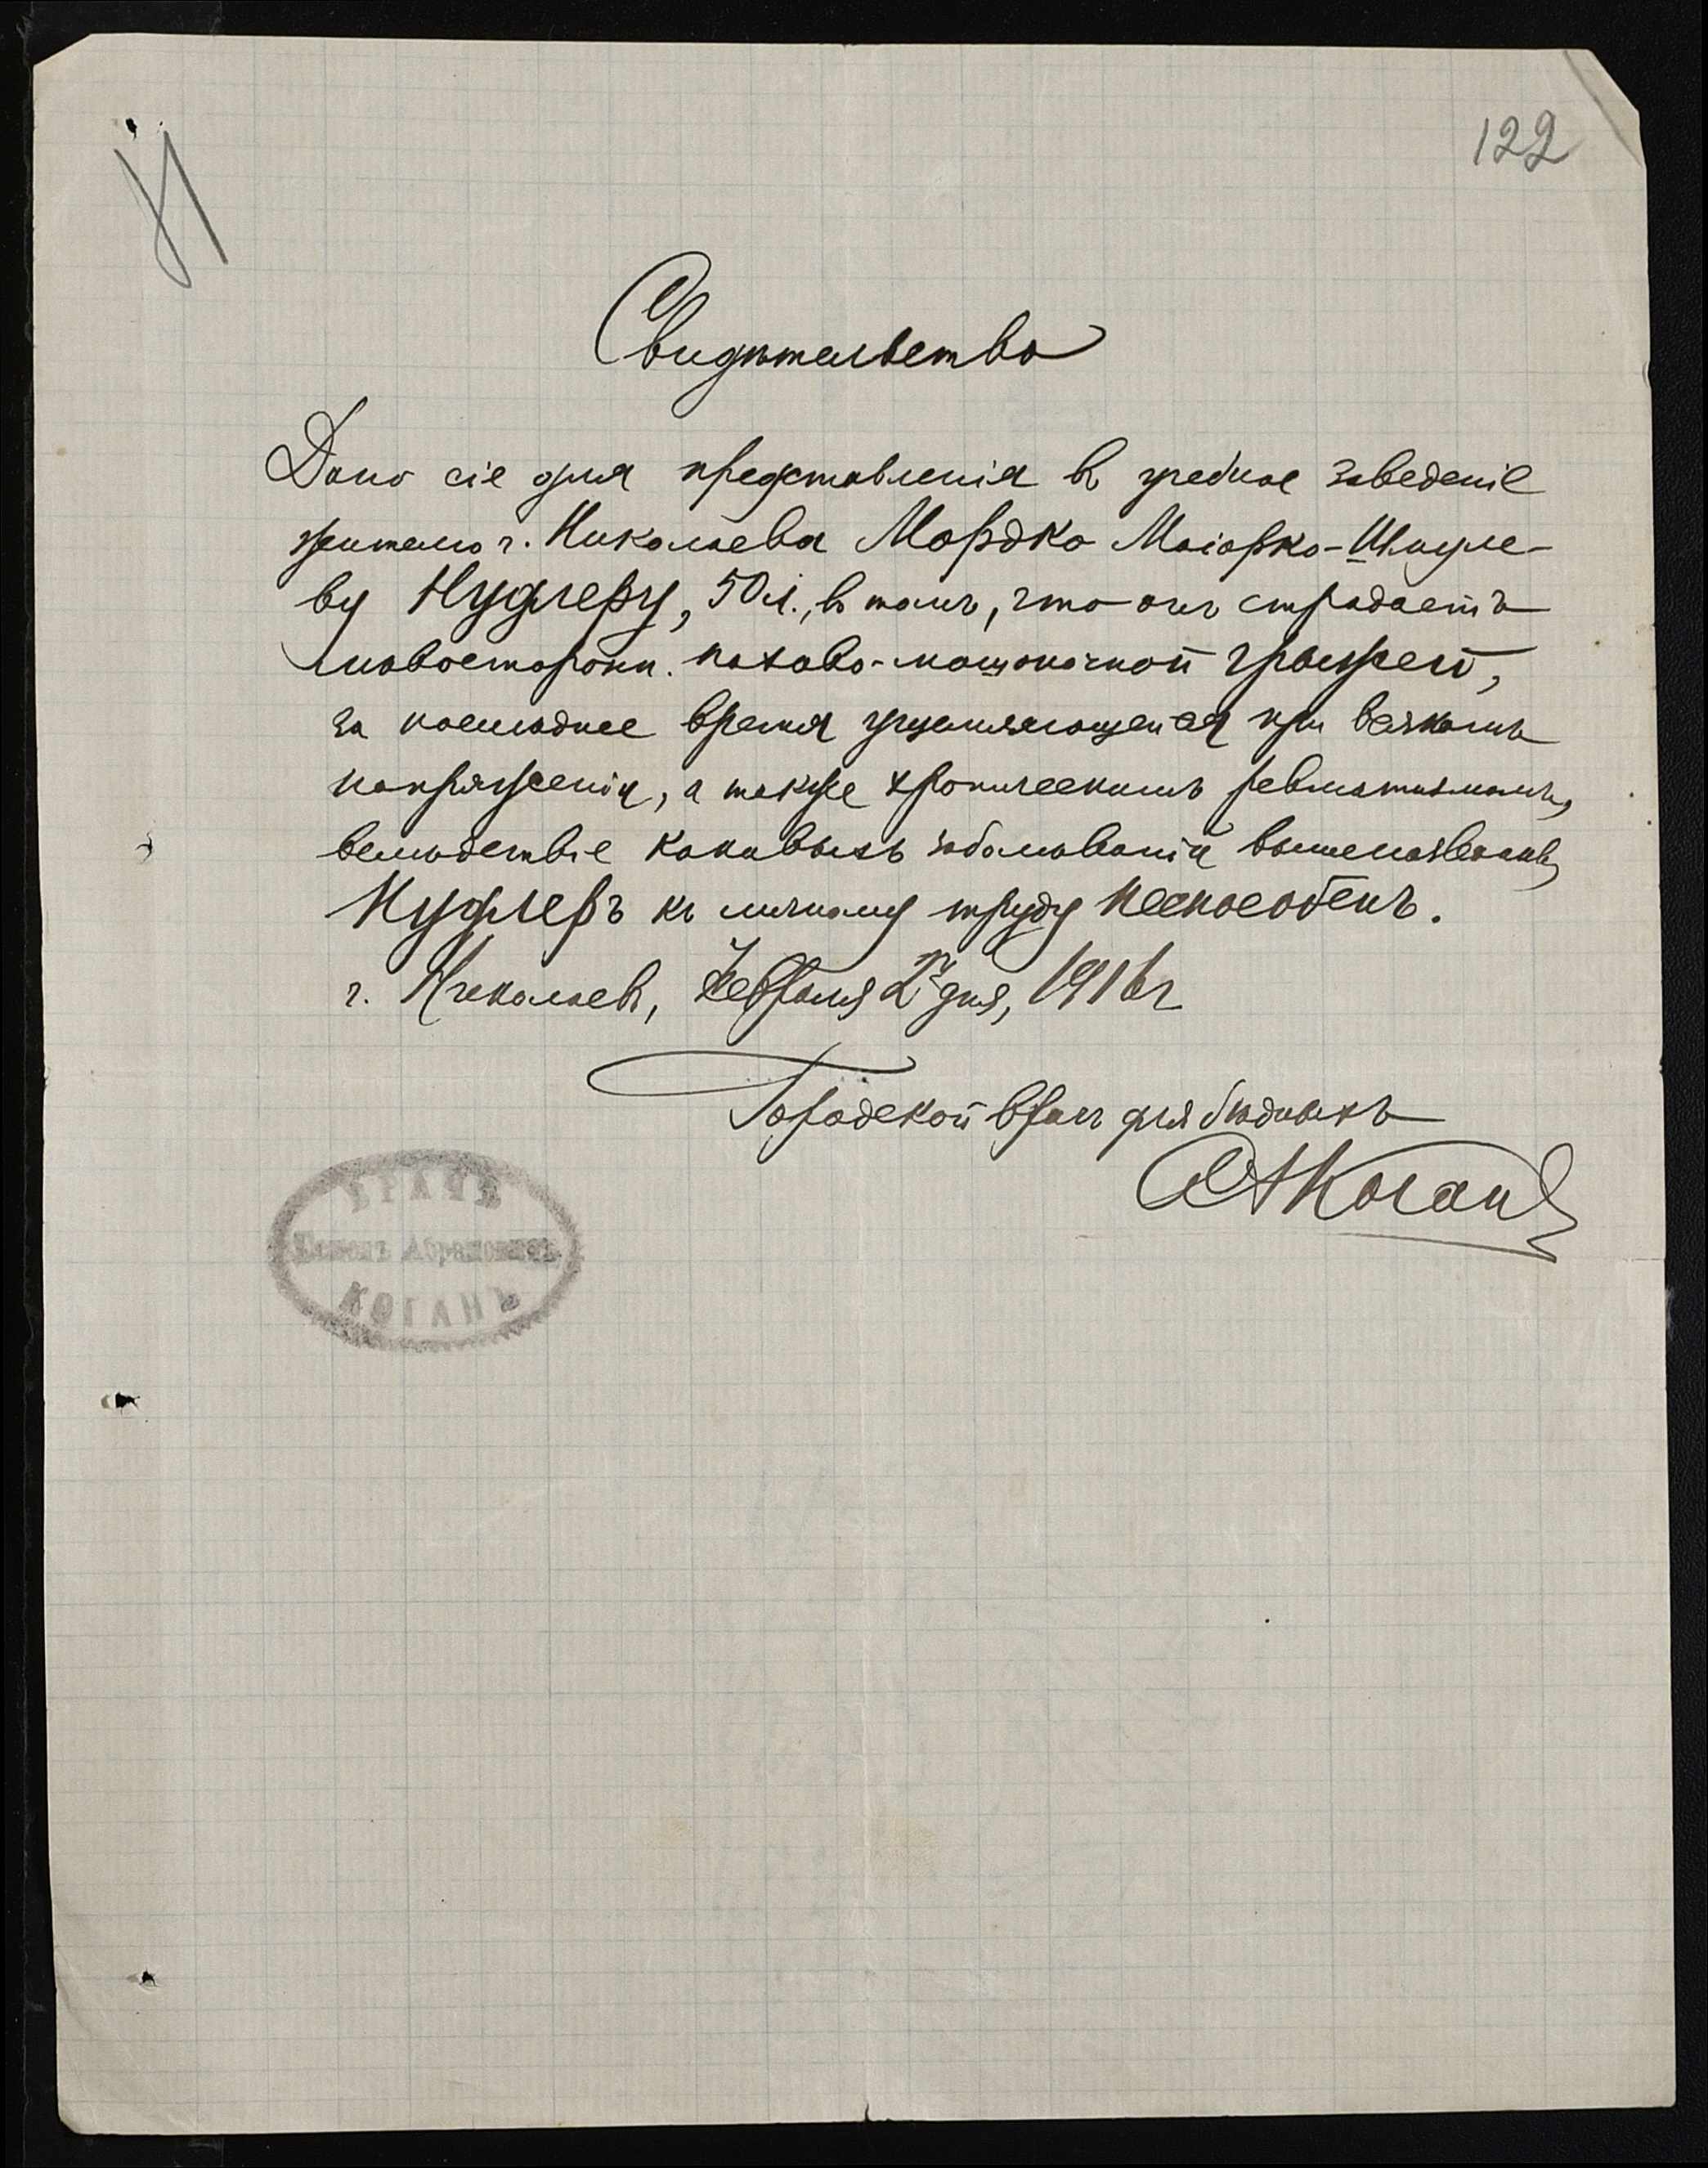 122
Свидѣтельство
Дано сіе для представленія въ учебное заведеніе
жителю г. Николаева Мордко Маіорко-Шмуле-
ву Нудлеру, 50 л., въ томъ, что онъ страдаетъ
лѣвосторонн. пахово-мошоночной грыжей,
за послѣднее время ущемляющейся при всякомъ
напряженіи, а также хроническимъ ревматизмомъ,
вслѣдствіе каковыхъ заболѣваній вышеназванный
Нудлеръ къ личному труду неспособенъ.
г. Николаевъ, Февраля 2го дня, 1916 г
Городской врачъ для бѣдныхъ
САКоганъ
ВРАЧЪ
Абрамовичъ
КОГАНЪ